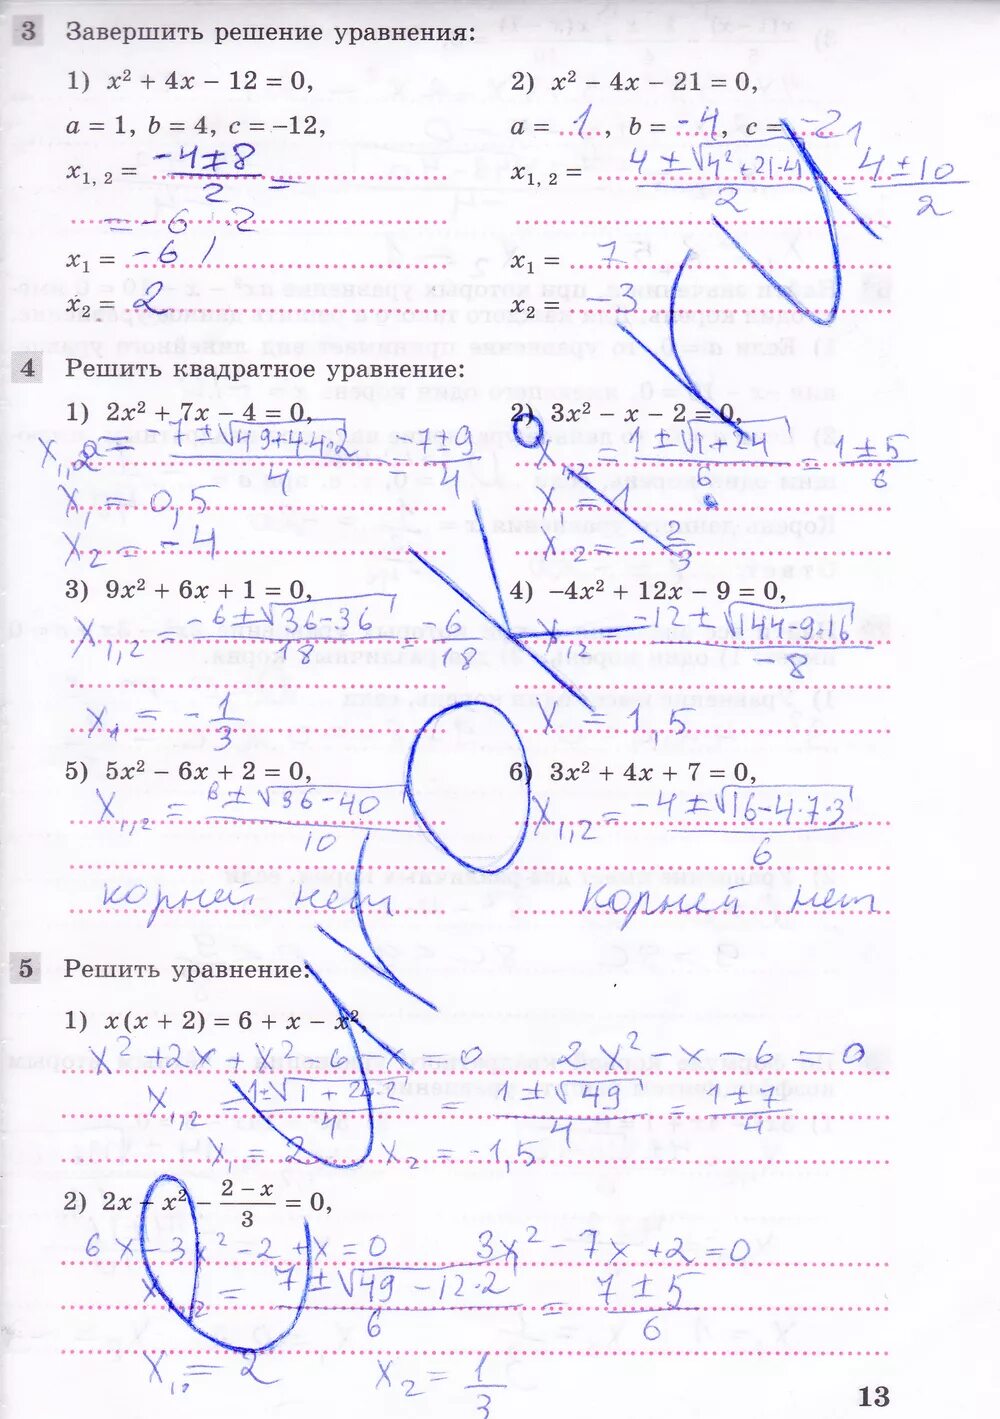 3 Завершить решение уравнения:
1) x² + 4x − 12 = 0,
a = 1, b = 4, c = −12,
x₁, ₂ = (−4 ± 8)/2 =
= −6 2
x₁ = −6
x₂ = 2
2) x² − 4x − 21 = 0,
a = 1, b = −4, c = −21
x₁, ₂ = (4 ± √(4² + 21·4))/2 = (4 ± 10)/2
x₁ = 7
x₂ = −3
4 Решить квадратное уравнение:
1) 2x² + 7x − 4 = 0,
x₁,₂ = (−7 ± √(49+4·4·2))/4 = (−7 ± 9)/4
x₁ = 0,5
x₂ = −4
2) 3x² − x − 2 = 0,
x₁,₂ = (1 ± √(1+24))/6 = (1 ± 5)/6
x₁ = 1
x₂ = −2/3
3) 9x² + 6x + 1 = 0,
x₁,₂ = (−6 ± √(36−36))/18 = −6/18
x₁ = −1/3
4) −4x² + 12x − 9 = 0,
x₁,₂ = (−12 ± √(144−9·16))/−8
x = 1,5
5) 5x² − 6x + 2 = 0,
x₁,₂ = (6 ± √(36−40))/10
корней нет
6) 3x² + 4x + 7 = 0,
x₁,₂ = (−4 ± √(16−4·7·3))/6
корней нет
5 Решить уравнение:
1) x(x + 2) = 6 + x − x²,
x² + 2x + x² − 6 − x = 0 2x² − x − 6 = 0
x₁,₂ = (1 ± √(1 + 24·2))/4 = (1 ± √49)/4 = (1 ± 7)/4
x₁ = 2 x₂ = −1,5
2) 2x − x² − (2 − x)/3 = 0,
6x − 3x² − 2 + x = 0 3x² − 7x + 2 = 0
x₁,₂ = (7 ± √(49 − 12·2))/6 = (7 ± 5)/6
x₁ = 2 x₂ = 1/3
13